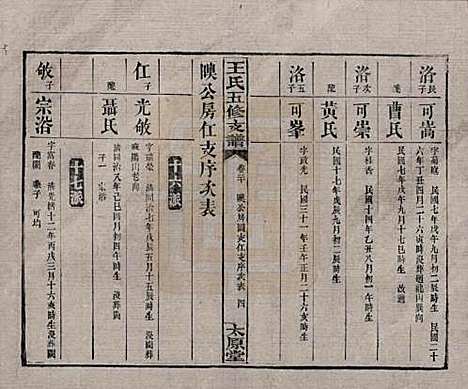 洛長子 可嵩
字菊庭 民國二十
六年丁丑四月二十六卯時沒葬趙龍山巽向
配 曹氏
民國七年戊午九月十七巳時生 改適
洛次子 可崇
字桂香 民國十四年乙丑八月初一午時生
配 黃氏
民國十七年戊辰九月初二辰時生
洛五子 可峯
字政光 民國三十一年壬午正月二十六亥時生
王氏五修支譜
卷三十 映公房仁支序次表 四
太原堂
映公房仁支序次表
仁子 光敬
字瑞榮 清同治七年戊辰五月十五辰時生 沒葬
配 聶氏
清同治八年己巳四月初四午時生 沒葬
子一 宗浴
十七派
敬子 宗浴
字富春 清光緒十二年丙戌三月十六亥時生 沒葬
繼子 可均